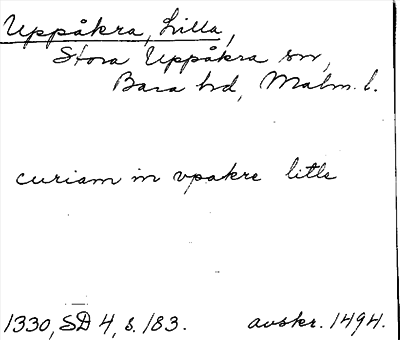 Uppåkra, Lilla,
Stora Uppåkra sn,
Bara hd, Malm. l.
curiam in vpakre litle
1330, SD 4, s. 183. avskr. 1494.